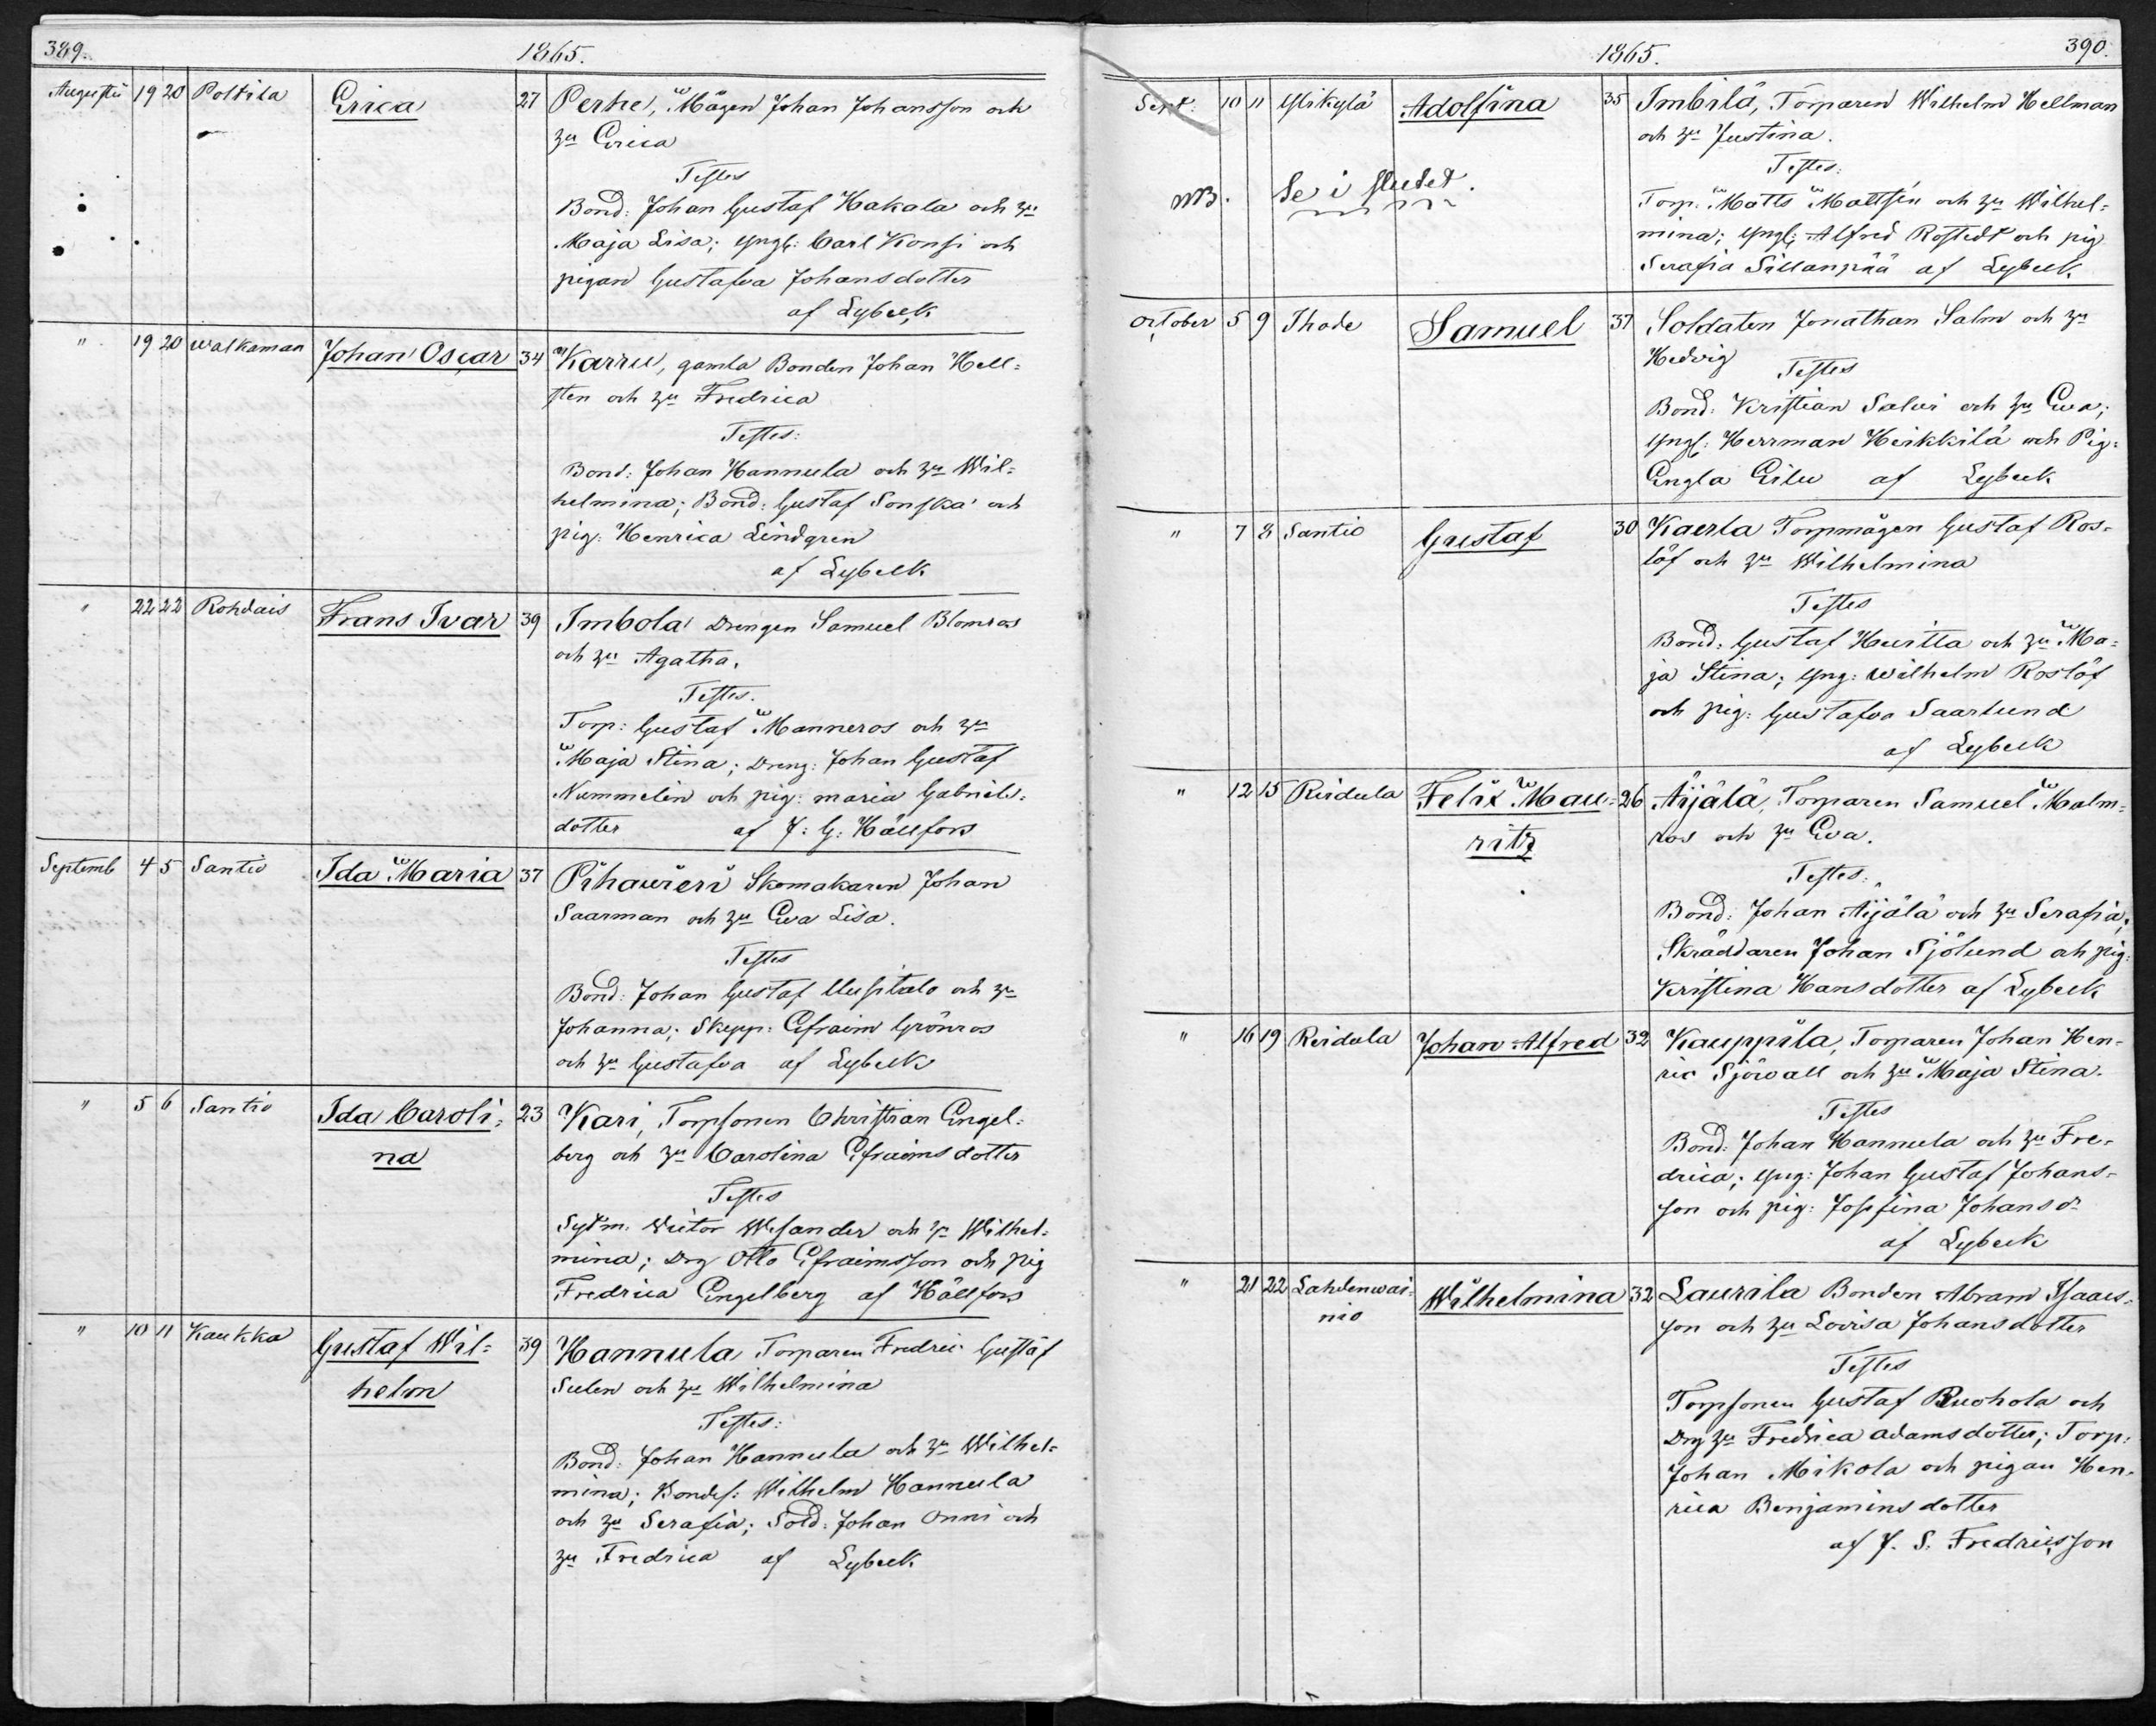 389.
1865.
Augusti 19 20 Poltila Erica 27 Perhe, Mågen Johan Johansson och
hu Erica
Testes
Bond: Johan Gustaf Hakala och hu
Maja Lisa; yngl: Carl Konsi och
pigan Gustafva Johansdotter
af Lybeck
" 19 20 Walkaman Johan Oscar 34 Karru, gamla Bonden Johan Hell=
sten och hu Fredrica
Testes:
Bond: Johan Hannula och hu Wil=
helmina; Bond: Gustaf Sonska och
pig: Henrica Lindgren
af Lybeck
" 22 22 Rohdais Frans Ivar 39 Imbola Drengen Samuel Blomros
och hu Agatha.
Testes.
Torp: Gustaf Manneros och hu
Maja Stina; Dreng: Johan Gustaf
Nummelin och pig: Maria Gabriels=
dotter af J: G: Hällfors
Septemb 4 5 Santio Ida Maria 37 Pihaureri Skomakaren Johan
Saarman och hu Eva Lisa.
Testes
Bond: Johan Gustaf Uusitalo och hu
Johanna; Skepp: Efraim Grönros
och hu Gustafva af Lybeck
" 5 6 Santio Ida Caroli= 23 Kari, Torpsonen Christian Engel=
na
berg och hu Carolina Efraimsdotter
Testes
Sytm: Victor Wesander och hu Wilhel=
mina; Drg Otto Efraimsson och pig
Fredrica Engelberg af Hällfors
" 10 11 Kaukka Gustaf Wil= 39 Hannula Torparen Fredric Gustaf
helm
Sulen och hu Wilhelmina
Testes:
Bond: Johan Hannula och hu Wilhel=
mina; Bondes: Wilhelm Hannula
och hu Serafia; Sold: Johan Onni och
hu Fredrica af Lybeck
1865.
390.
Sept: 10 11 Ylikylä Adolfina 35 Imbilä, Torparen Wilhelm Hellman
och hu Justina.
Testes:
NB. Se i slutet.
Torp: Matts Mattsin och hu Wilhel=
mina; yngl: Alfred Rostedt och pig
Serafia Sillanpää af Lybeck
October 5 9 Thode Samuel 37 Soldaten Jonathan Salm och hu
Hedvig
Testes
Bond: Kristian Salvi och hu Eva;
yngl: Herrman Heikkilä och Pig:
Engla Eilu af Lybeck
" 7 8 Santio Gustaf 30 Kaerla Torpmågen Gustaf Ros=
löf och hu Wilhelmina
Testes
Bond: Gustaf Huitta och hu Ma=
ja Stina; yng: Wilhelm Roslöf
och pig: Gustafva Saarlund
af Lybeck
" 12 15 Reidula Felix Mau= 26 Äijälä, Torparen Samuel Malm=
ritz
ros och hu Eva.
Testes:
Bond: Johan Äijälä och hu Serafia;
Skräddaren Johan Sjölund och pig:
Kristina Hansdotter af Lybeck
" 16 19 Reidula Johan Alfred 32 Kauppila, Torparen Johan Hen=
ric Sjöwall och hu Maja Stina.
Testes
Bond: Johan Hannula och hu Fre=
drica; yng: Johan Gustaf Johans=
son och pig: Josefina Johansdr
af Lybeck
" 21 22 Lahdenwai= Wilhelmina 32 Laurila Bonden Abram Isaacs=
nio
son och hu Lovisa Johansdotter
Testes
Torpsonen Gustaf Ruohola och
Drg hu Fredrica Adamsdotter; Torp:
Johan Mikola och pigan Hen=
rica Benjaminsdotter
af J. S. Fredricsson